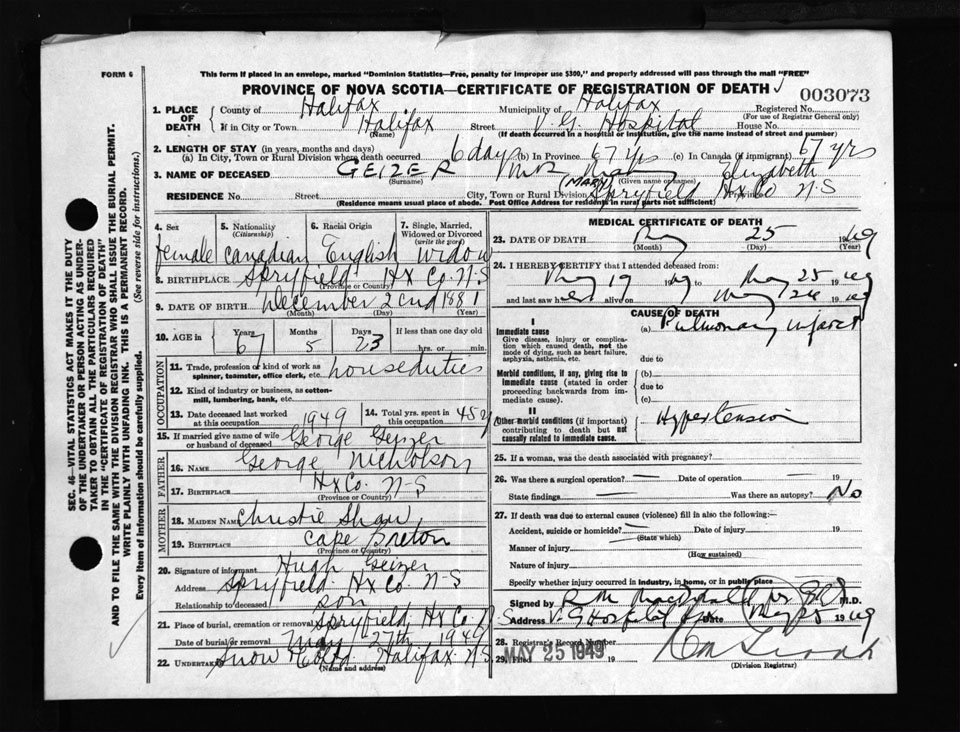 FORM 6
This form if placed in an envelope, marked "Dominion Statistics—Free, penalty for improper use $300," and properly addressed will pass through the mail "FREE"
PROVINCE OF NOVA SCOTIA—CERTIFICATE OF REGISTRATION OF DEATH
003073
1. PLACE OF DEATH { County of Halifax Municipality of Halifax Registered No.
(For use of Registrar General only)
If in City or Town Halifax Street V. G. Hospital House No.
(Name) (If death occurred in a hospital or institution, give the name instead of street and number)
2. LENGTH OF STAY (in years, months and days)
(a) In City, Town or Rural Division where death occurred 6 days (b) In Province 67 yrs (c) In Canada (if immigrant) 67 yrs
3. NAME OF DECEASED GEIZER Mrs (MARY) Elizabeth
(Surname) (Given name or names)
RESIDENCE No. Street City, Town or Rural Division Spryfield Hx Co Province N-S
(Residence means usual place of abode. Post Office Address for residents in rural parts not sufficient)
4. Sex female
5. Nationality (Citizenship) Canadian
6. Racial Origin English
7. Single, Married, Widowed or Divorced (write the word) Widow
8. BIRTHPLACE Spryfield Hx Co. N-S
(Province or Country)
9. DATE OF BIRTH December 2cnd 1881
(Month) (Day) (Year)
10. AGE in { Years 67 Months 5 Days 23 If less than one day old
hrs. or min.
OCCUPATION
11. Trade, profession or kind of work as spinner, teamster, office clerk, etc. houseduties
12. Kind of industry or business, as cotton-mill, lumbering, bank, etc.
13. Date deceased last worked at this occupation 1949
14. Total yrs. spent in this occupation 45 y
15. If married give name of wife or husband of deceased George Geizer
FATHER
16. NAME George Nicholson
17. BIRTHPLACE Hx Co. N-S
(Province or Country)
MOTHER
18. MAIDEN NAME Christie Shaw
19. BIRTHPLACE Cape Breton
(Province or Country)
20. Signature of informant Hugh Geizer
Address Spryfield Hx Co. N-S
Relationship to deceased son
21. Place of burial, cremation or removal Spryfield, Hx Co N S
Date of burial or removal May 27th 1949
22. Undertaker Snow & Co Ltd Halifax N.S.
(Name and address)
MEDICAL CERTIFICATE OF DEATH
23. DATE OF DEATH May 25 1949
(Month) (Day) (Year)
24. I HEREBY CERTIFY that I attended deceased from:
May 19 1949 to May 25 1949
and last saw her alive on May 24 1949
CAUSE OF DEATH
I
Immediate cause (a) Pulmonary infarct
Give disease, injury or complication which caused death, not the mode of dying, such as heart failure, asphyxia, asthenia, etc.
due to
Morbid conditions, if any, giving rise to immediate cause (stated in order proceeding backwards from immediate cause). (b)
due to
(c)
II
Other morbid conditions (if important) contributing to death but not causally related to immediate cause. Hypertension
25. If a woman, was the death associated with pregnancy?
26. Was there a surgical operation? — Date of operation — 19
State findings — Was there an autopsy? No
27. If death was due to external causes (violence) fill in also the following:—
Accident, suicide or homicide? — Date of injury 19
(State which)
Manner of injury
(How sustained)
Nature of injury
Specify whether injury occurred in industry, in home, or in public place
Signed by R M MacDonald M.D.
Address V. G Hospital Hfx May 25 1949
28. Registrar's Record Number
29. Filed MAY 25 1949 19
(Division Registrar)
SEC. 46—VITAL STATISTICS ACT MAKES IT THE DUTY OF THE UNDERTAKER OR PERSON ACTING AS UNDERTAKER TO OBTAIN ALL THE PARTICULARS REQUIRED IN THE "CERTIFICATE OF REGISTRATION OF DEATH" AND TO FILE THE SAME WITH THE DIVISION REGISTRAR WHO SHALL ISSUE THE BURIAL PERMIT.
WRITE PLAINLY WITH UNFADING INK. THIS IS A PERMANENT RECORD.
Every item of information should be carefully supplied. (See reverse side for instructions.)